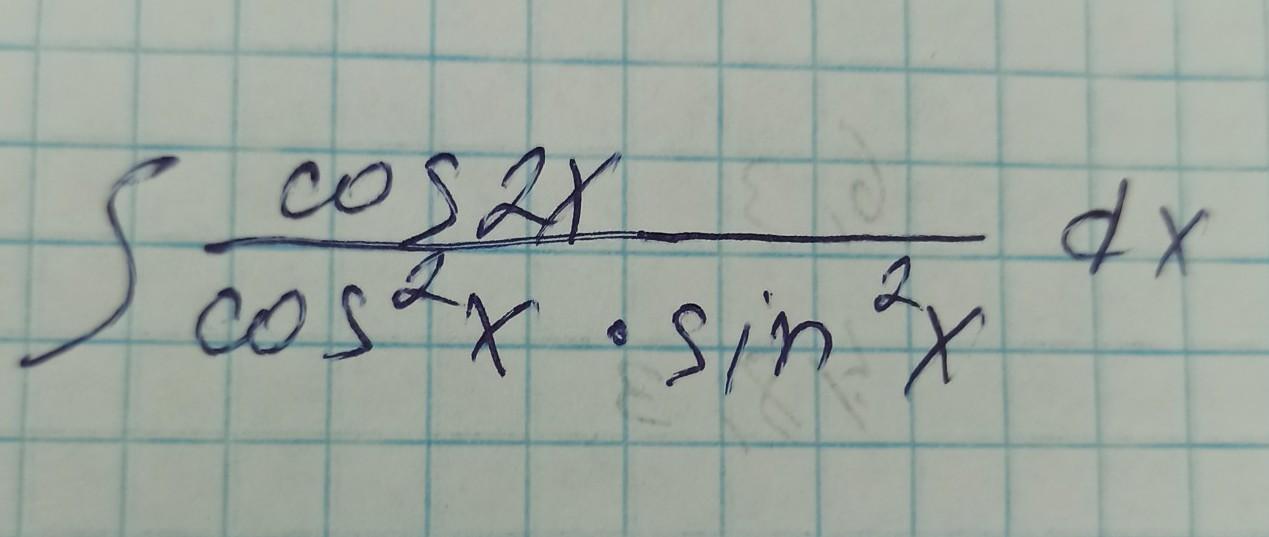 ∫ cos 2x / cos²x · sin²x dx